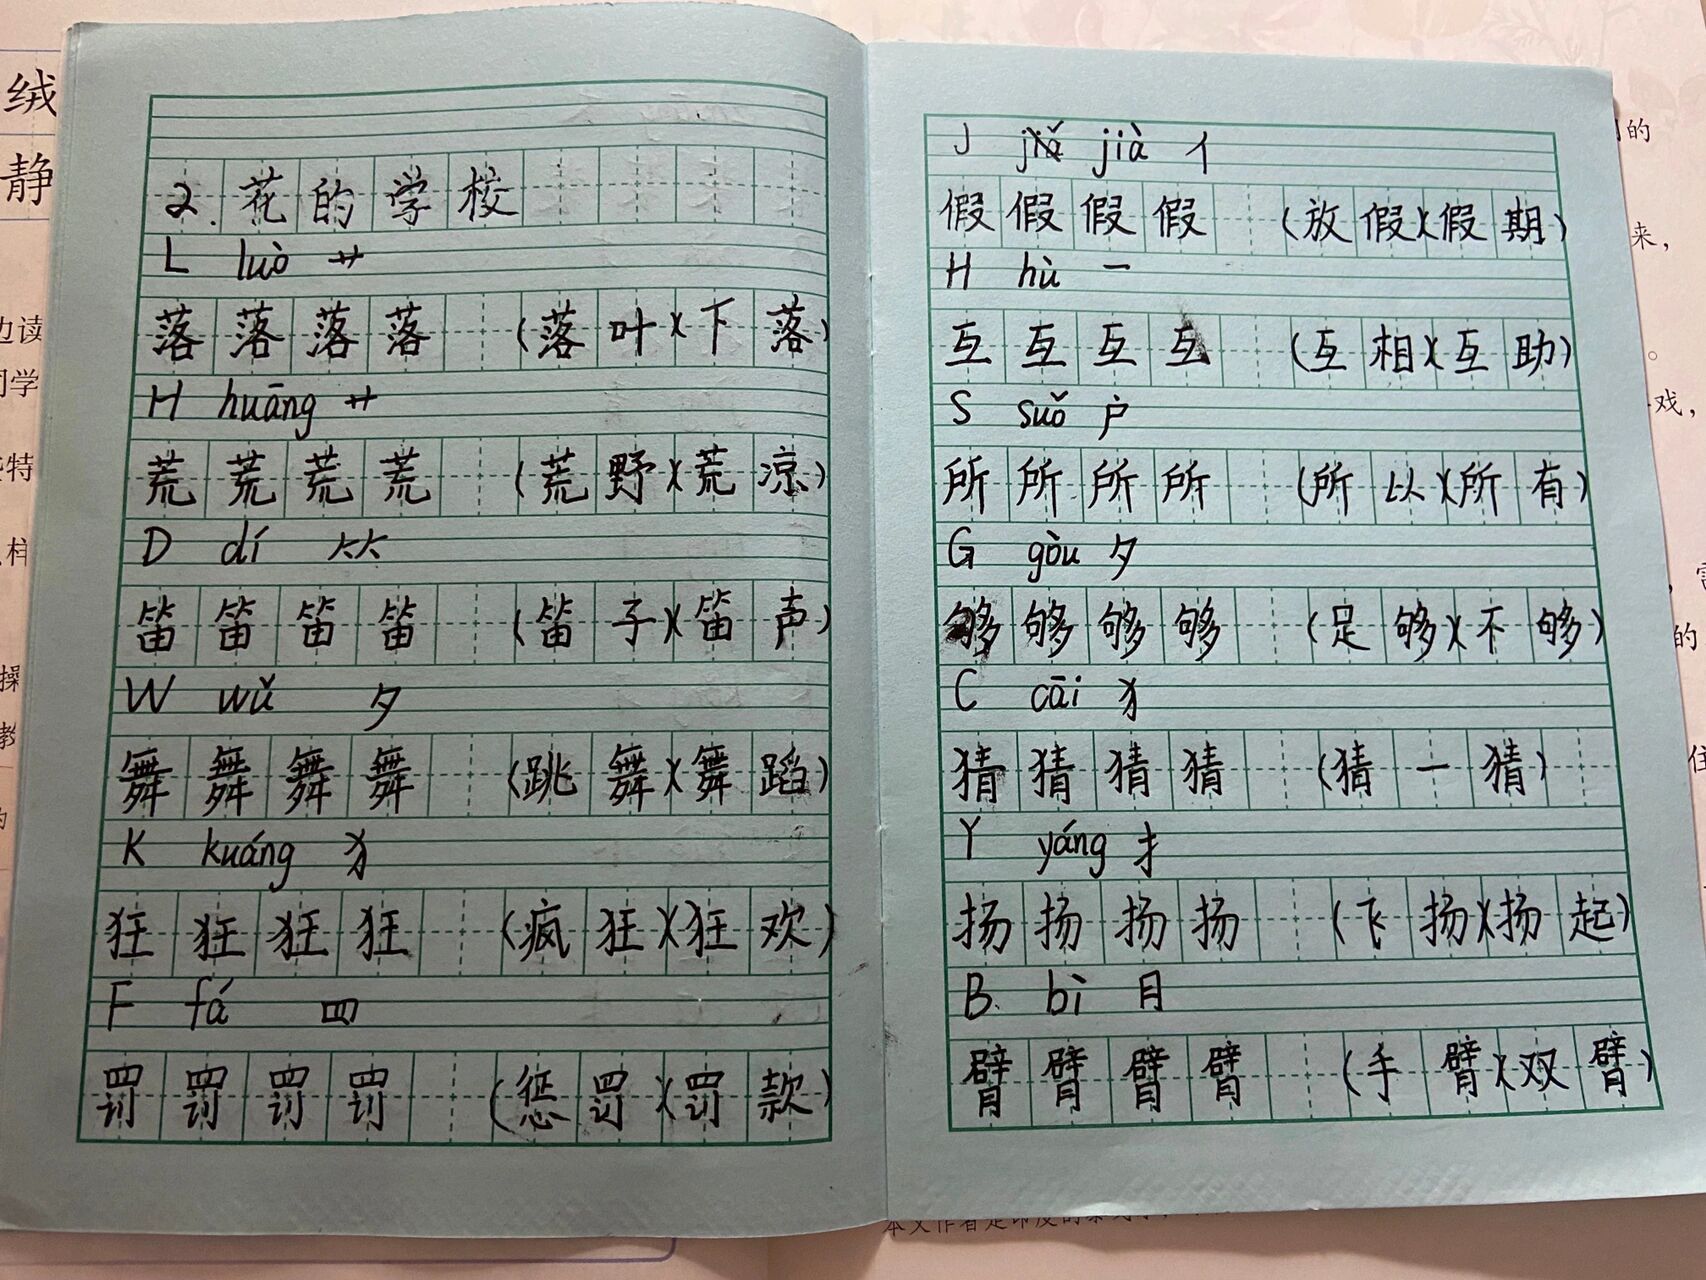 绒
静
边读
同学
些特
样
操
教
的
2. 花的学校
L luò 艹
落落落落 (落叶)(下落)
H huāng 艹
荒荒荒荒 (荒野)(荒凉)
D dí ⺮
笛笛笛笛 (笛子)(笛声)
W wǔ 夕
舞舞舞舞 (跳舞)(舞蹈)
K kuáng 犭
狂狂狂狂 (疯狂)(狂欢)
F fá 罒
罚罚罚罚 (惩罚)(罚款)
J jiǎ jià 亻
假假假假 (放假)(假期)
H hù 一
互互互互 (互相)(互助)
S suǒ 户
所所所所 (所以)(所有)
G gòu 夕
够够够够 (足够)(不够)
C cāi 犭
猜猜猜猜 (猜一猜)
Y yáng 扌
扬扬扬扬 (飞扬)(扬起)
B. bì 月
臂臂臂臂 (手臂)(双臂)
的
来，
。
戏，
的
住
本文作者是印度的泰戈尔